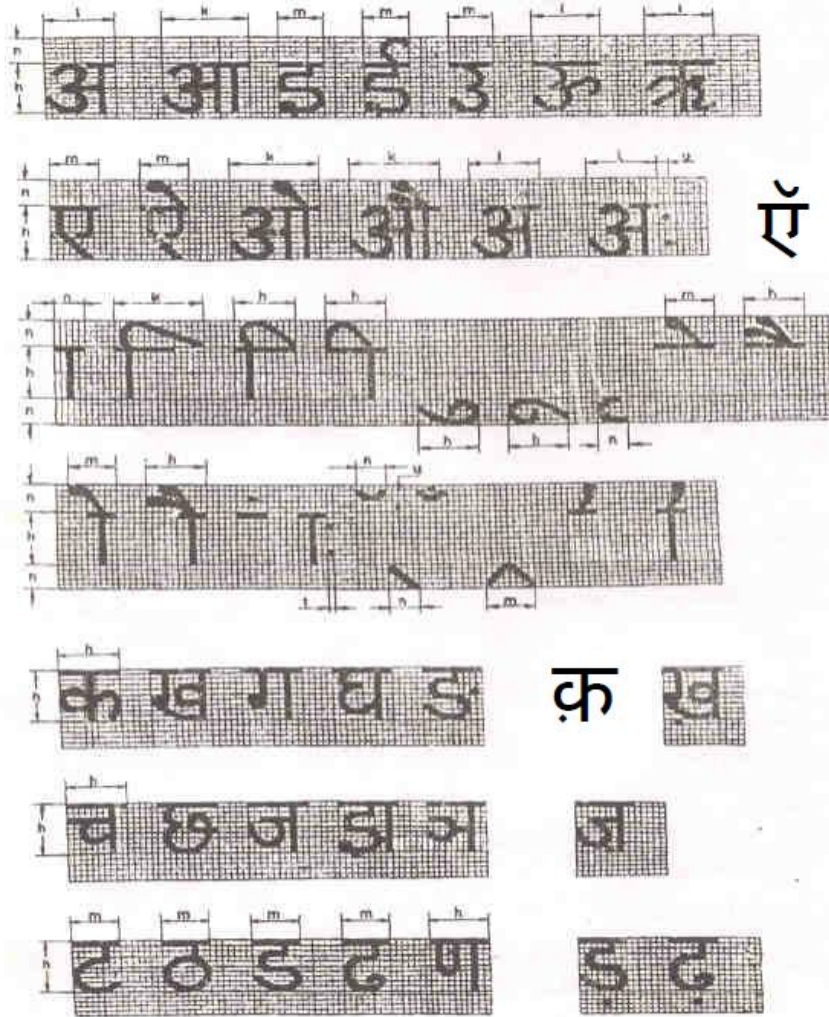 l k m m m l l
n
h
अ आ इ ई उ ऊ ऋ
m m k k l l y
n
h
ए ऐ ओ औ अं अः ऍ
n k h h m h
n
h
n
ा ी ि ी ु ू ृ े ै
h h n
m h n y
n
h
n
ो ौ
t n m
h
h
क ख ग घ ङ क़ ख़
h
h
च छ ज झ ञ ज
m m m m h
h
ट ठ ड ढ ण ड़ ढ़